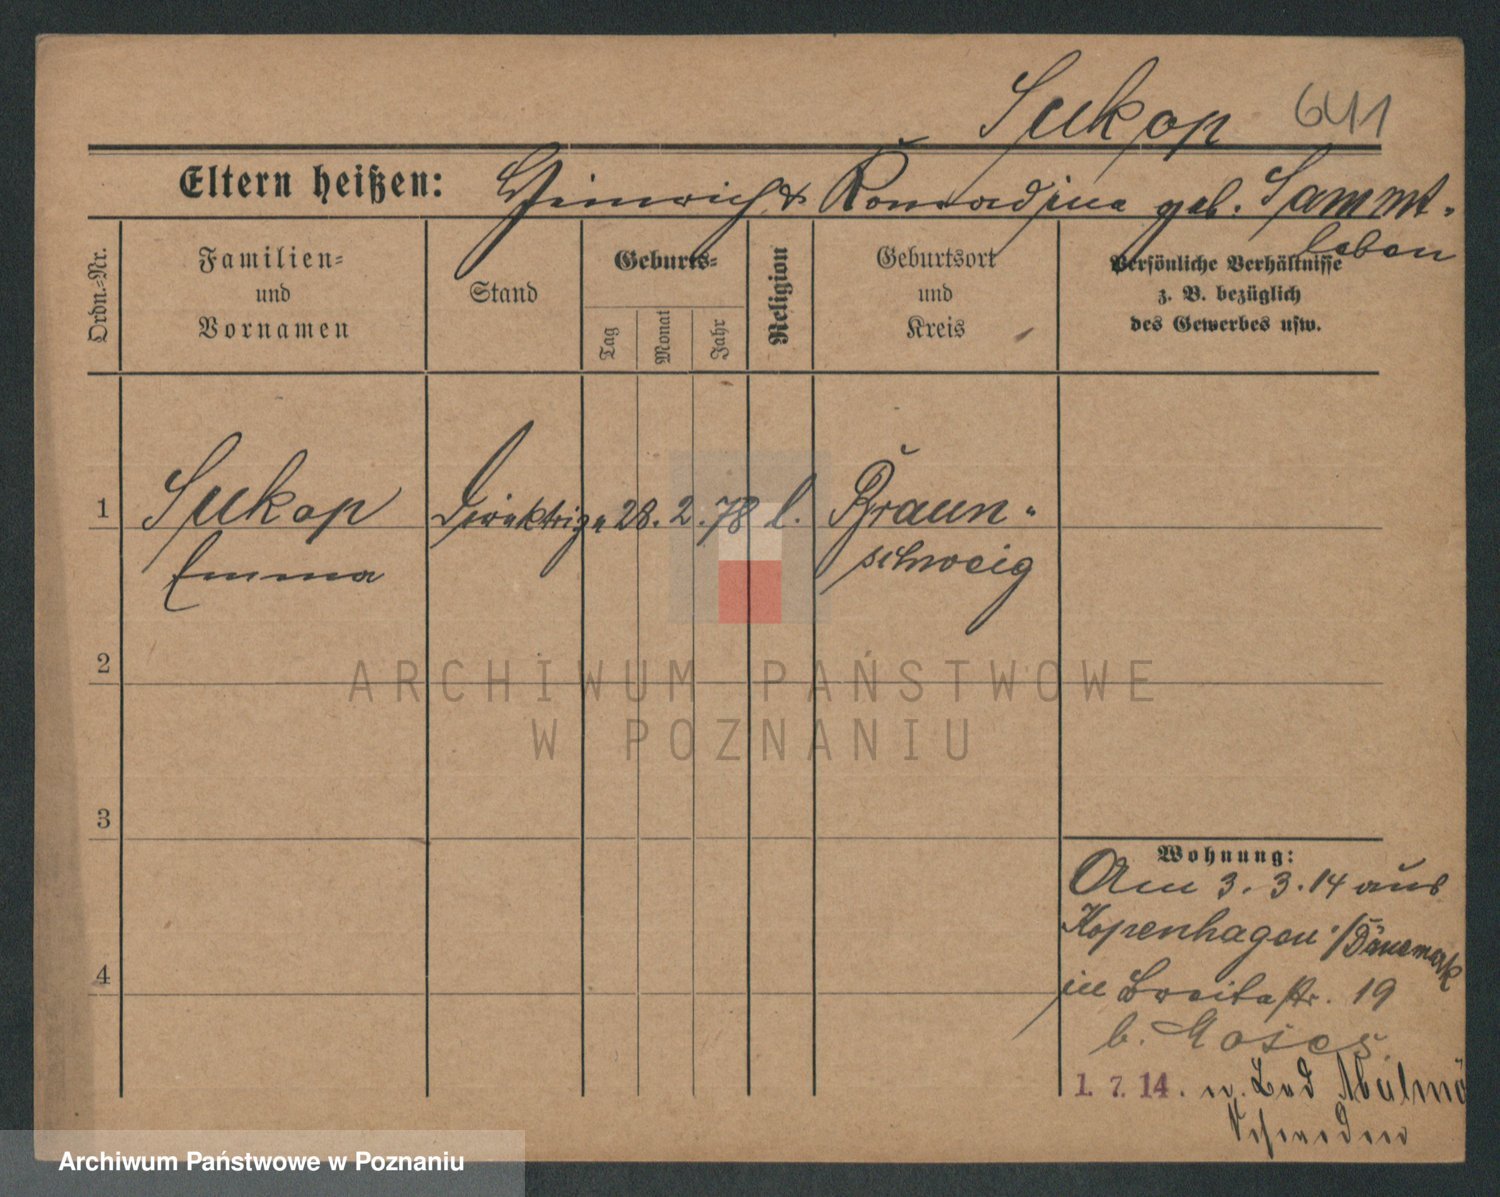 Sukop 641
Eltern heißen: Heinrich & Konradine geb. Sammt-
leben
Ordn.-Nr.
Familien-
und
Vornamen
Stand
Geburts-
Tag
Monat
Jahr
Religion
Geburtsort
und
Kreis
Persönliche Verhältnisse
z. B. bezüglich
des Gewerbes usw.
1 Sukop Direktrice 28. 2. 78 l. Braun-
Emma schweig
2
ARCHIWUM PAŃSTWOWE
W POZNANIU
3
Wohnung:
Am 3. 3. 14 aus
Kopenhagen /Dänemark
4
in Breitestr. 19
b. Moses
1. 7. 14. n. Bad Malmö
Schweden
Archiwum Państwowe w Poznaniu